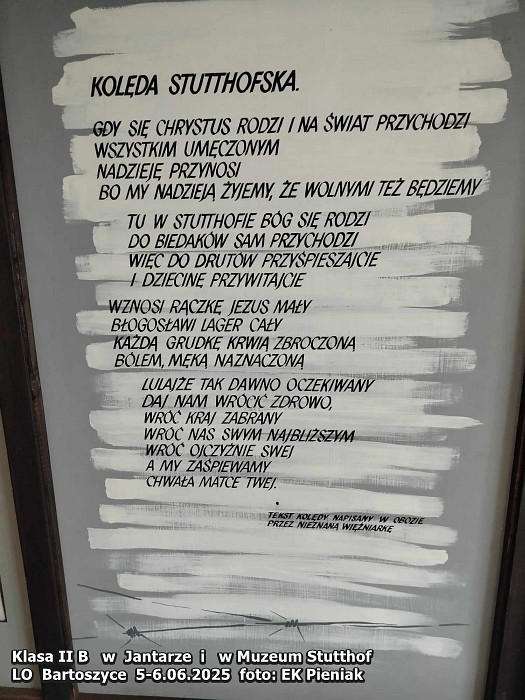 KOLĘDA STUTTHOFSKA.
GDY SIĘ CHRYSTUS RODZI I NA ŚWIAT PRZYCHODZI
WSZYSTKIM UMĘCZONYM
NADZIEJĘ PRZYNOSI
BO MY NADZIEJĄ ŻYJEMY, ŻE WOLNYMI TEŻ BĘDZIEMY
TU W STUTTHOFIE BÓG SIĘ RODZI
DO BIEDAKÓW SAM PRZYCHODZI
WIĘC DO DRUTÓW PRZYŚPIESZAJCIE
I DZIECINĘ PRZYWITAJCIE
WZNOSI RĄCZKĘ JEZUS MAŁY
BŁOGOSŁAWI LAGER CAŁY
KAŻDĄ GRUDKĘ KRWIĄ ZBROCZONĄ
BÓLEM, MĘKĄ NAZNACZONĄ
LULAJŻE TAK DAWNO OCZEKIWANY
DAJ NAM WRÓCIĆ ZDROWO,
WRÓĆ KRAJ ZABRANY
WRÓĆ NAS SWYM NAJBLIŻSZYM
WRÓĆ OJCZYŹNIE SWEJ
A MY ZAŚPIEWAMY
CHWAŁA MATCE TWEJ.
TEKST KOLĘDY NAPISANY W OBOZIE
PRZEZ NIEZNANĄ WIĘŹNIARKĘ
Klasa II B w Jantarze i w Muzeum Stutthof
LO Bartoszyce 5-6.06.2025 foto: EK Pieniak